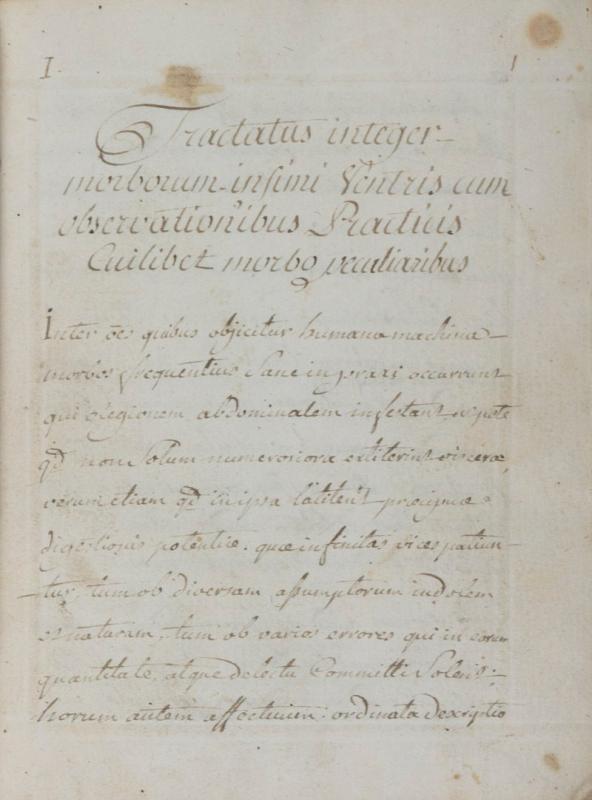 I.
1
Tractatus integer
morborum infimi Ventris cum
observationibus Practicis
Cuilibet morbo peculiaribus
Inter oẽs quibus objicitur humana machina
morbos frequentius sane in praxi occurrunt
qui Regionem abdominalem infestant utpote
qđ non Solum numerosiora extiterint viscera,
verum etiam qđ in ipsa latitent præcipuæ
digestionis potentiæ. quæ infinitas vices patiun-
tur, tum ob diversam assumptorum indolem
et naturam, tum ob varios errores qui in eorum
quantitate, atque delectu Committi Solent:
horum autem affectuum ordinata descriptio